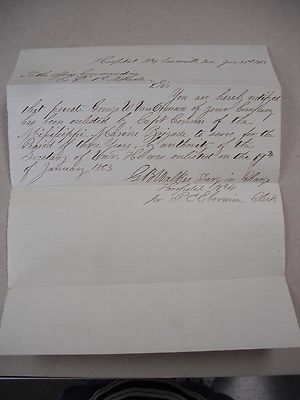 Hospital No 4 Evansville Ind. Jan 21st 1863
To the Officer Commanding
Co
Sir
You are hereby notified
that private George W. of your Company
has been enlisted by Capt Conner of the
Mississippi Marine Brigade to serve for the
Period of three Years, by authority of the
Secretary of War. He was enlisted on the 19th
of January 1863
G. B. Walker Surg in Charge
Hospital No 4
pr Clerk